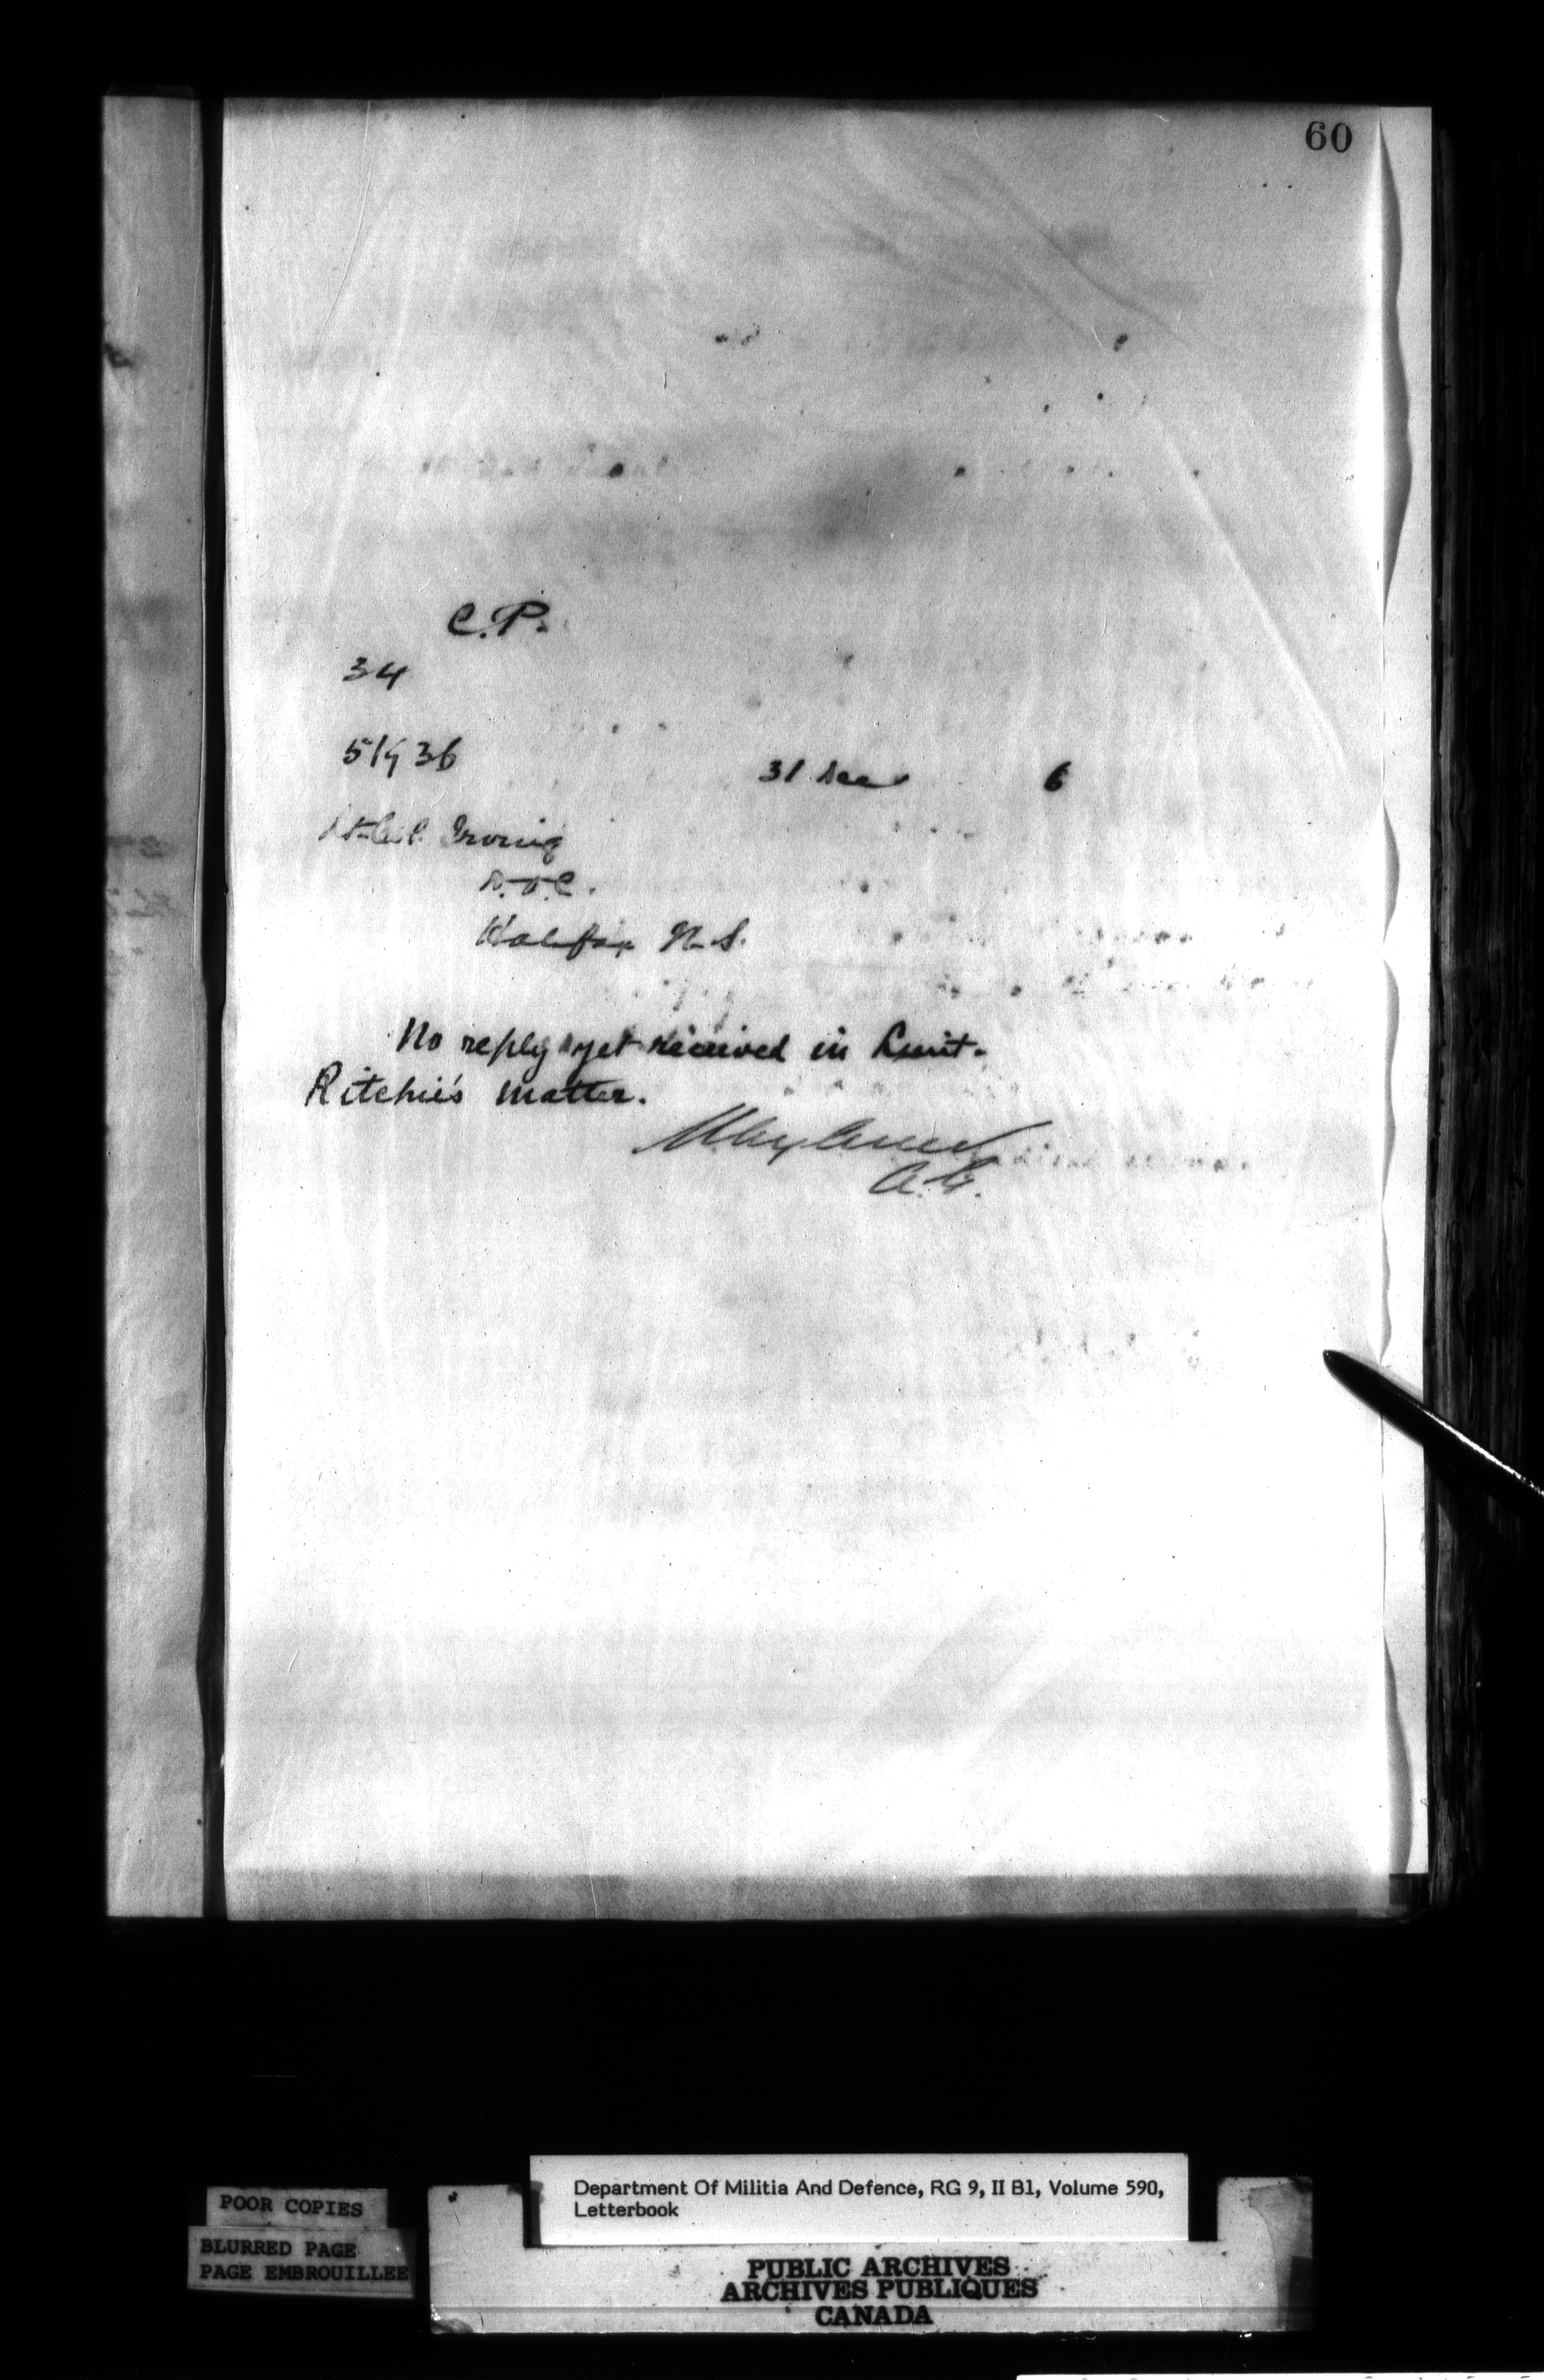 60
C.P.
34
51936
31 Dec 6
Lt-Col. Irving
D.O.C.
Halifax N.S.
No reply yet received in Lieut.
Ritchie's matter.
A.G.
Department Of Militia And Defence, RG 9, II B1, Volume 590,
Letterbook
POOR COPIES
BLURRED PAGE
PAGE EMBROUILLEE
PUBLIC ARCHIVES
ARCHIVES PUBLIQUES
CANADA